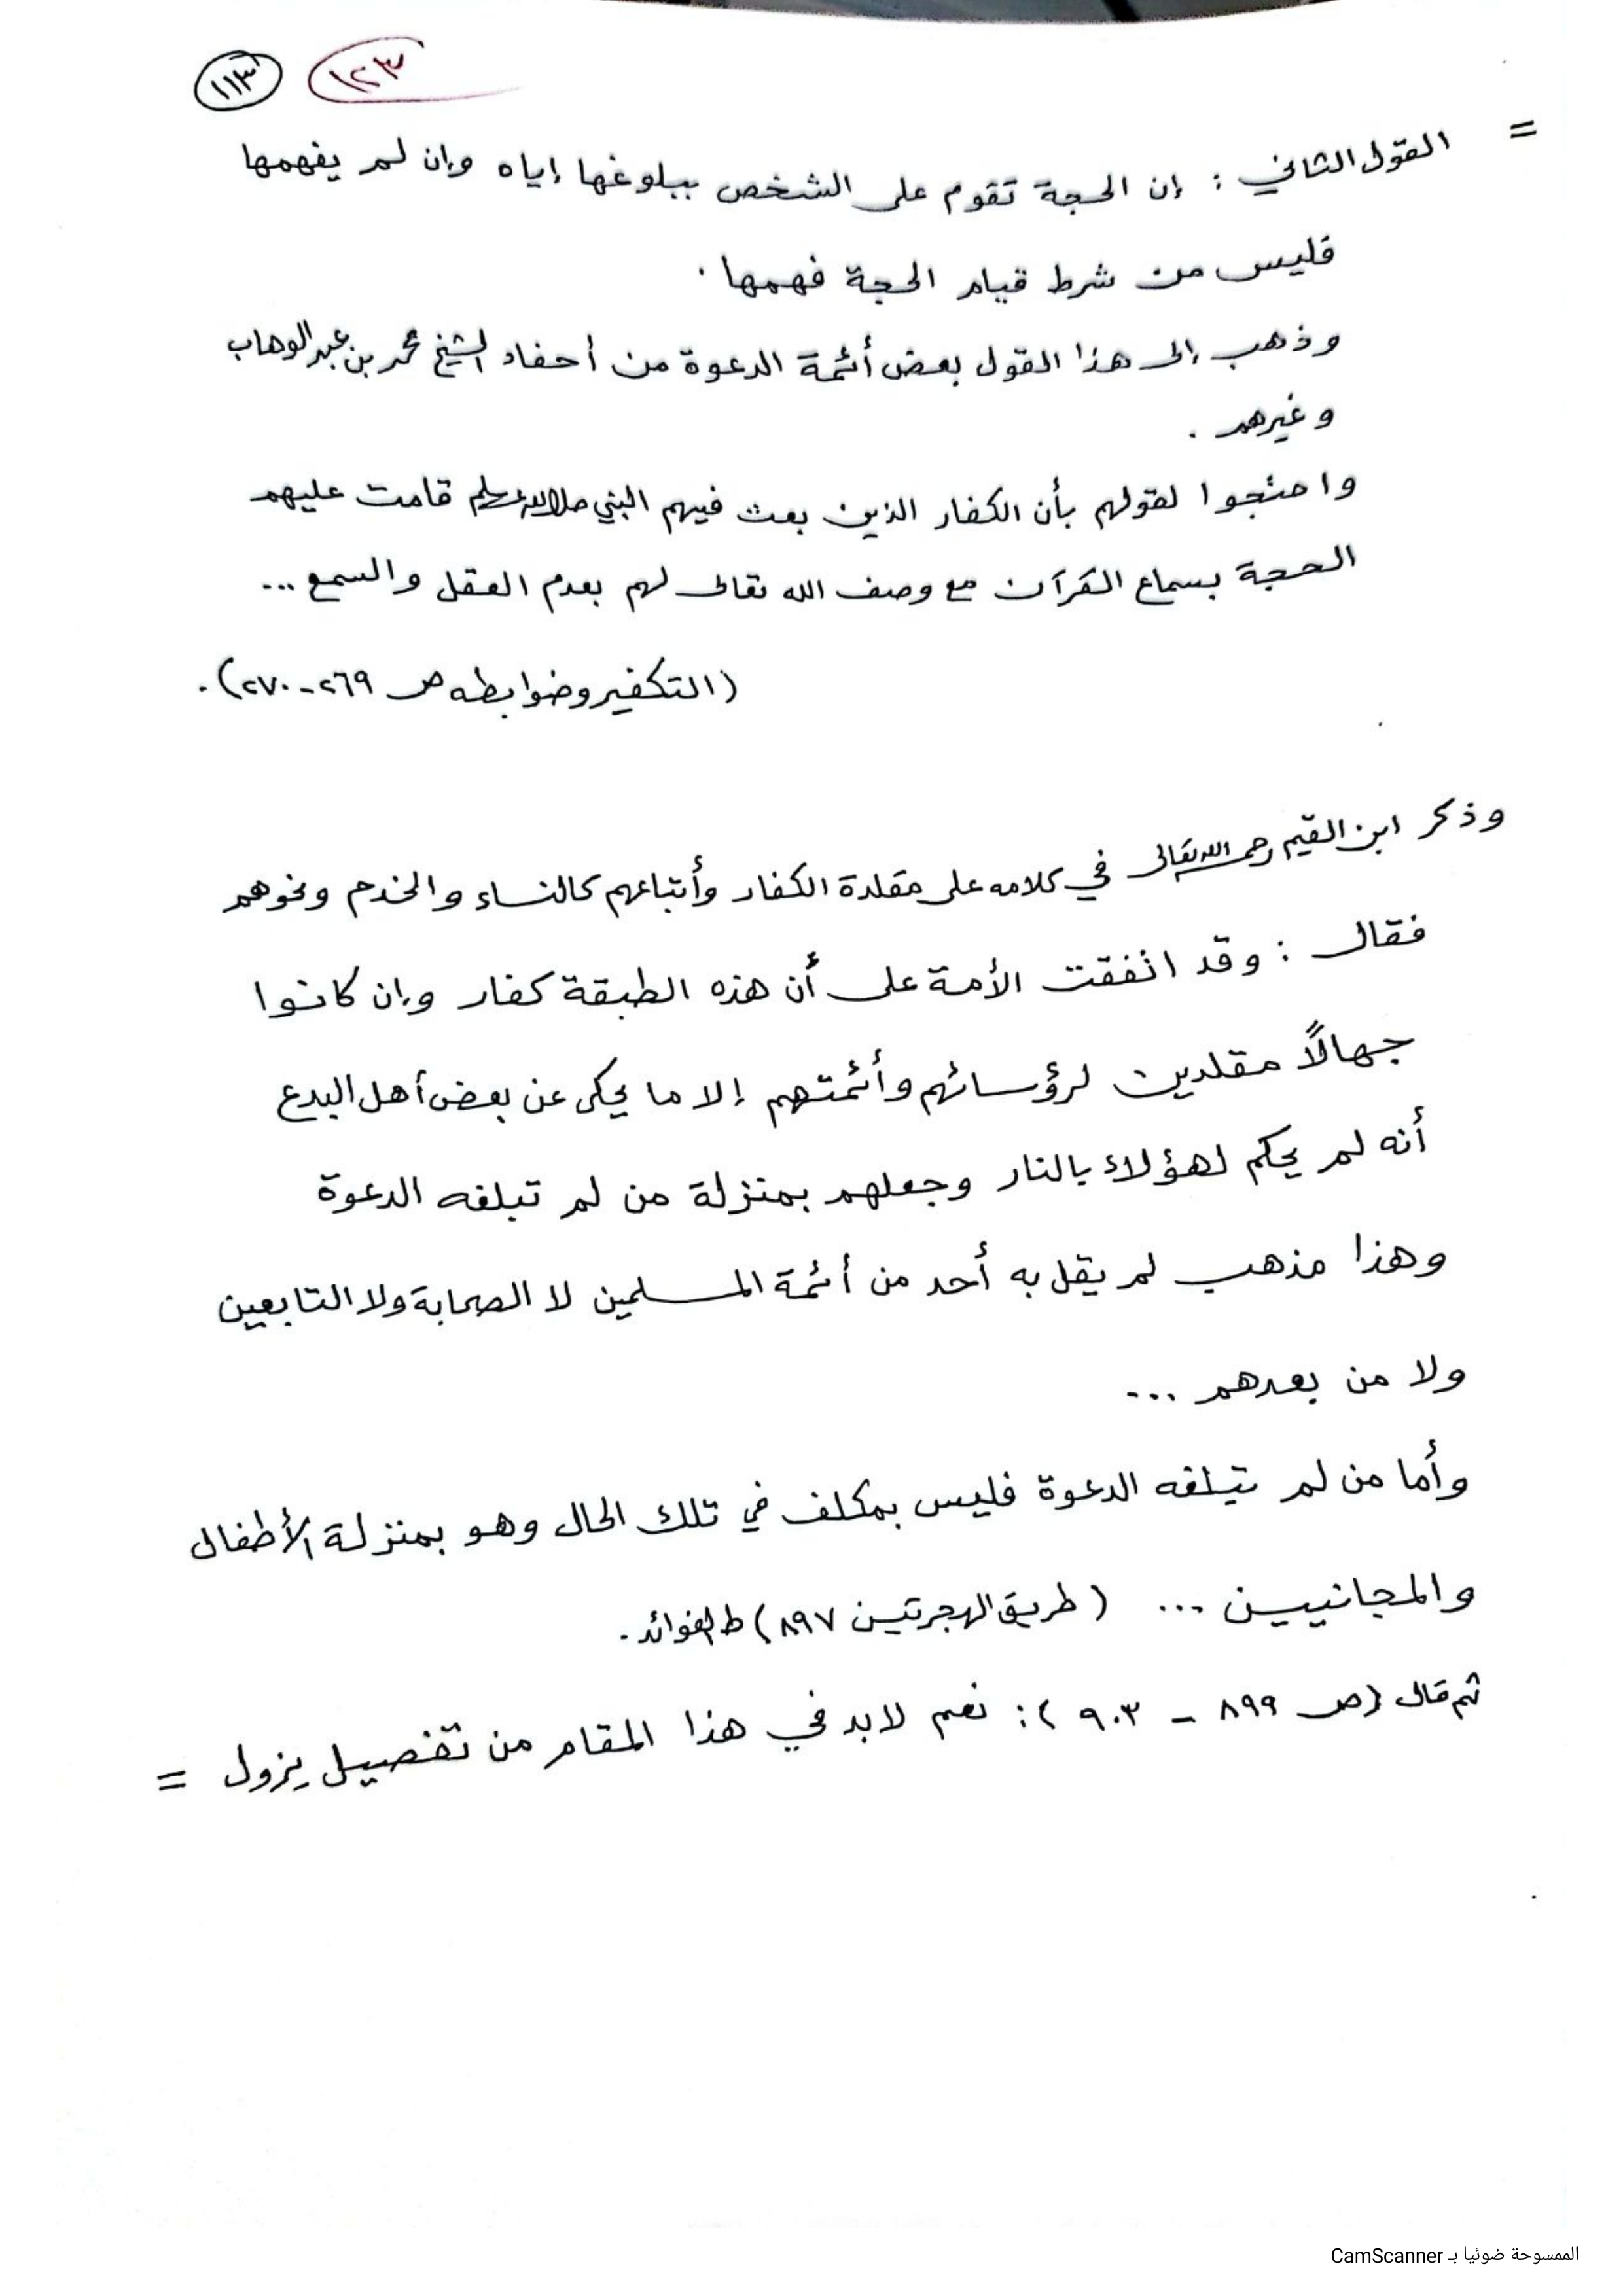 ١٢٣ ١١٣
= القول الثاني : إن الحجة تقوم على الشخص ببلوغها إياه وإن لم يفهمها
فليس من شرط قيام الحجة فهمها .
وذهب إلى هذا القول بعض أئمة الدعوة من أحفاد الشيخ محمد بن عبدالوهاب
وغيرهم .
واحتجوا لقولهم بأن الكفار الذين بعث فيهم النبي صلى الله عليه وسلم قامت عليهم
الحجة بسماع القرآن مع وصف الله تعالى لهم بعدم العقل والسمع ...
(التكفير وضوابطه ص ٢٦٩-٢٧٠) .
وذكر ابن القيم رحمه الله تعالى في كلامه على مقلدة الكفار وأتباعهم كالنساء والخدم ونحوهم
فقال : وقد اتفقت الأمة على أن هذه الطبقة كفار وإن كانوا
جهالًا مقلدين لرؤسائهم وأئمتهم إلا ما يحكى عن بعض أهل البدع
أنه لم يحكم لهؤلاء بالنار وجعلهم بمنزلة من لم تبلغه الدعوة
وهذا مذهب لم يقل به أحد من أئمة المسلمين لا الصحابة ولا التابعين
ولا من بعدهم ...
وأما من لم تبلغه الدعوة فليس بمكلف في تلك الحال وهو بمنزلة الأطفال
والمجانيين ... (طريق الهجرتين ٨٩٧) ط الفوائد .
ثم قال (ص ٨٩٩ - ٩٠٣) : نعم لابد في هذا المقام من تفصيل يزول =
الممسوحة ضوئيا بـ CamScanner